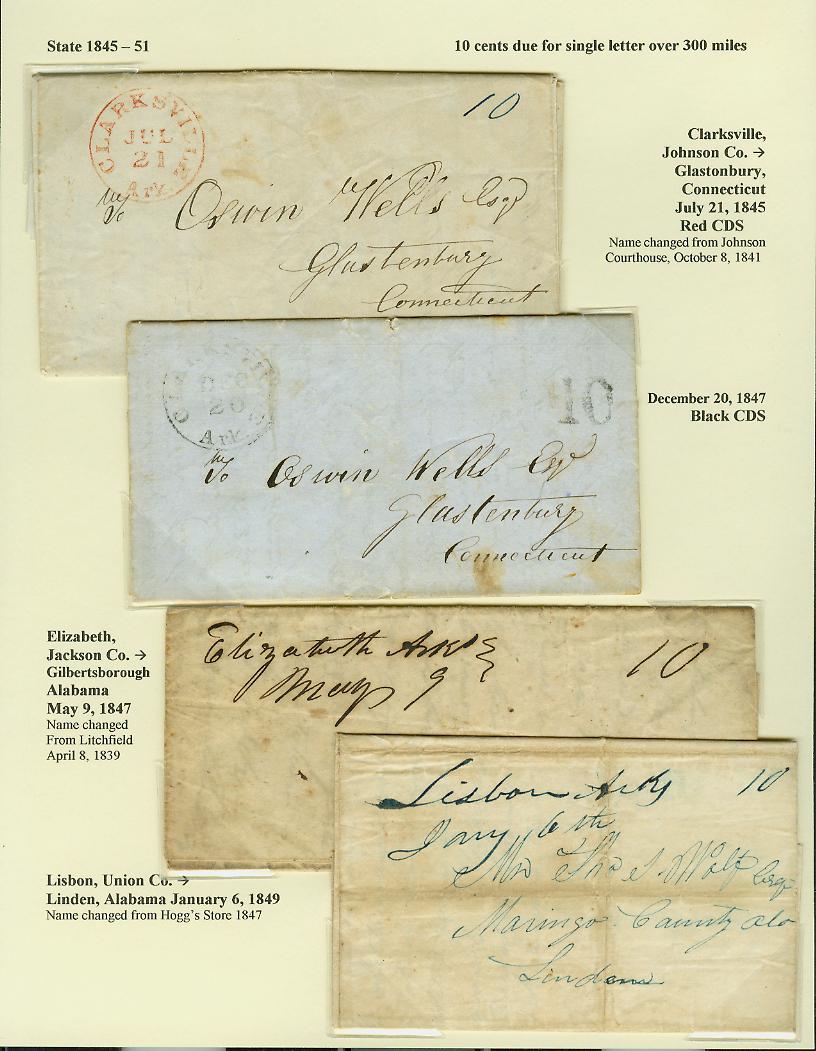 State 1845 – 51
10 cents due for single letter over 300 miles
CLARKSVILLE
JUL
21
Ary.
10
To Oswin Wells Esqr
Glastenbury
Connecticut
Clarksville,
Johnson Co. →
Glastonbury,
Connecticut
July 21, 1845
Red CDS
Name changed from Johnson
Courthouse, October 8, 1841
CLARKSVILLE
DEC
20
Ark.
10
To Oswin Wells Esqr
Glastenbury
Connecticut
December 20, 1847
Black CDS
Elizabeth Arks
May 9
10
Elizabeth,
Jackson Co. →
Gilbertsborough
Alabama
May 9, 1847
Name changed
From Litchfield
April 8, 1839
Lisbon Arks
10
Jany 6th
Mr Thos S Wolf Esqr
Maringo County Ala
Linden
Lisbon, Union Co. →
Linden, Alabama January 6, 1849
Name changed from Hogg's Store 1847